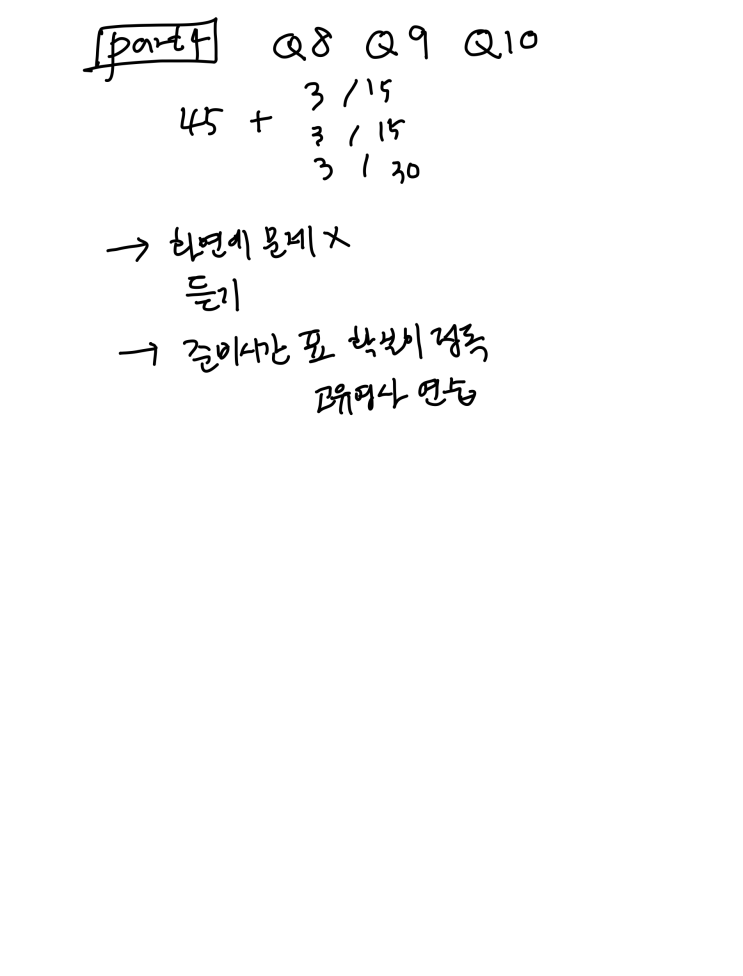 part4 Q8 Q9 Q10
3 / 15
45 +
3 / 15
3 / 30
→ 화면에 문제 X
듣기
→ 준비시간 표
고유명사 연습